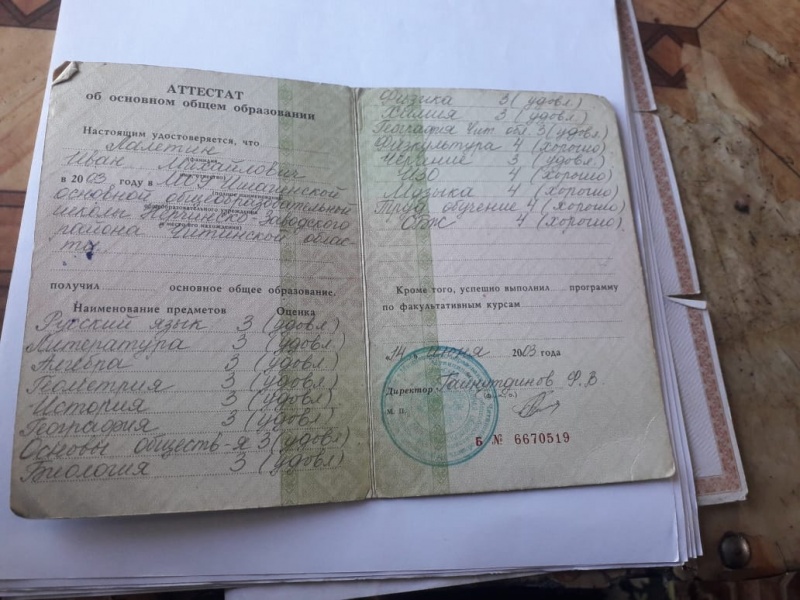 АТТЕСТАТ
об основном общем образовании
Настоящим удостоверяется, что
Лалетин
(фамилия,
Иван Михайлович
в 2003 году в МОУ Ишагинской
основной общеобразовательной
школы Нерчинско-Заводского
района Читинской облас-
ти
получил основное общее образование.
Наименование предметов Оценка
Русский язык 3 (удовл)
Литература 3 (удовл)
Алгебра 3 (удовл)
Геометрия 3 (удовл)
История 3 (удовл)
География 3 (удовл)
Основы обществ-я 3 (удовл)
Биология 3 (удовл)
Физика 3 (удовл)
Химия 3 (удовл)
География Чит. обл. 3 (удовл)
Физкультура 4 (хорошо)
Черчение 3 (удовл)
ИЗО 4 (хорошо)
Музыка 4 (хорошо)
Труд. обучение 4 (хорошо)
ОБЖ 4 (хорошо)
Кроме того, успешно выполнил программу
по факультативным курсам
14 июня 2003 года
Директор Гайнутдинов Ф.В.
М. П.
Б № 6670519